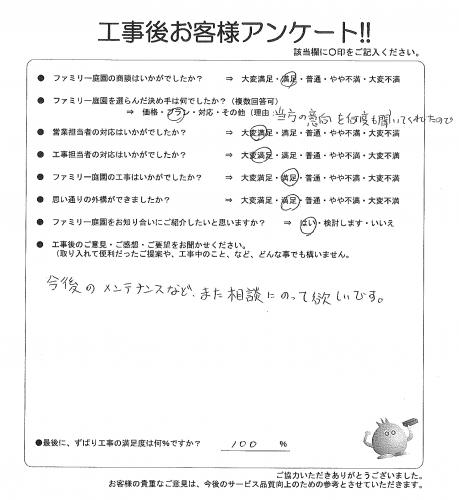 工事後お客様アンケート!!
該当欄に○印をご記入ください。
● ファミリー庭園の商談はいかがでしたか？ ⇒ 大変満足・満足・普通・やや不満・大変不満
● ファミリー庭園を選らんだ決め手は何でしたか？（複数回答可）
⇒ 価格・プラン・対応・その他（理由：当方の意向を何度も聞いてくれたので
● 営業担当者の対応はいかがでしたか？ ⇒ 大変満足・満足・普通・やや不満・大変不満
● 工事担当者の対応はいかがでしたか？ ⇒ 大変満足・満足・普通・やや不満・大変不満
● ファミリー庭園の工事はいかがでしたか？ ⇒ 大変満足・満足・普通・やや不満・大変不満
● 思い通りの外構ができましたか？ ⇒ 大変満足・満足・普通・やや不満・大変不満
● ファミリー庭園をお知り合いにご紹介したいと思いますか？ ⇒ はい・検討します・いいえ
● 工事後のご意見・ご感想・ご要望をお聞かせください。
（取り入れて便利だったご提案や、工事中のこと、など、どんな事でも構いません。
今後のメンテナンスなど、また相談にのって欲しいです。
●最後に、ずばり工事の満足度は何％ですか？ 100 ％
ご協力いただきありがとうございました。
お客様の貴重なご意見は、今後のサービス品質向上のための参考とさせていただきます。